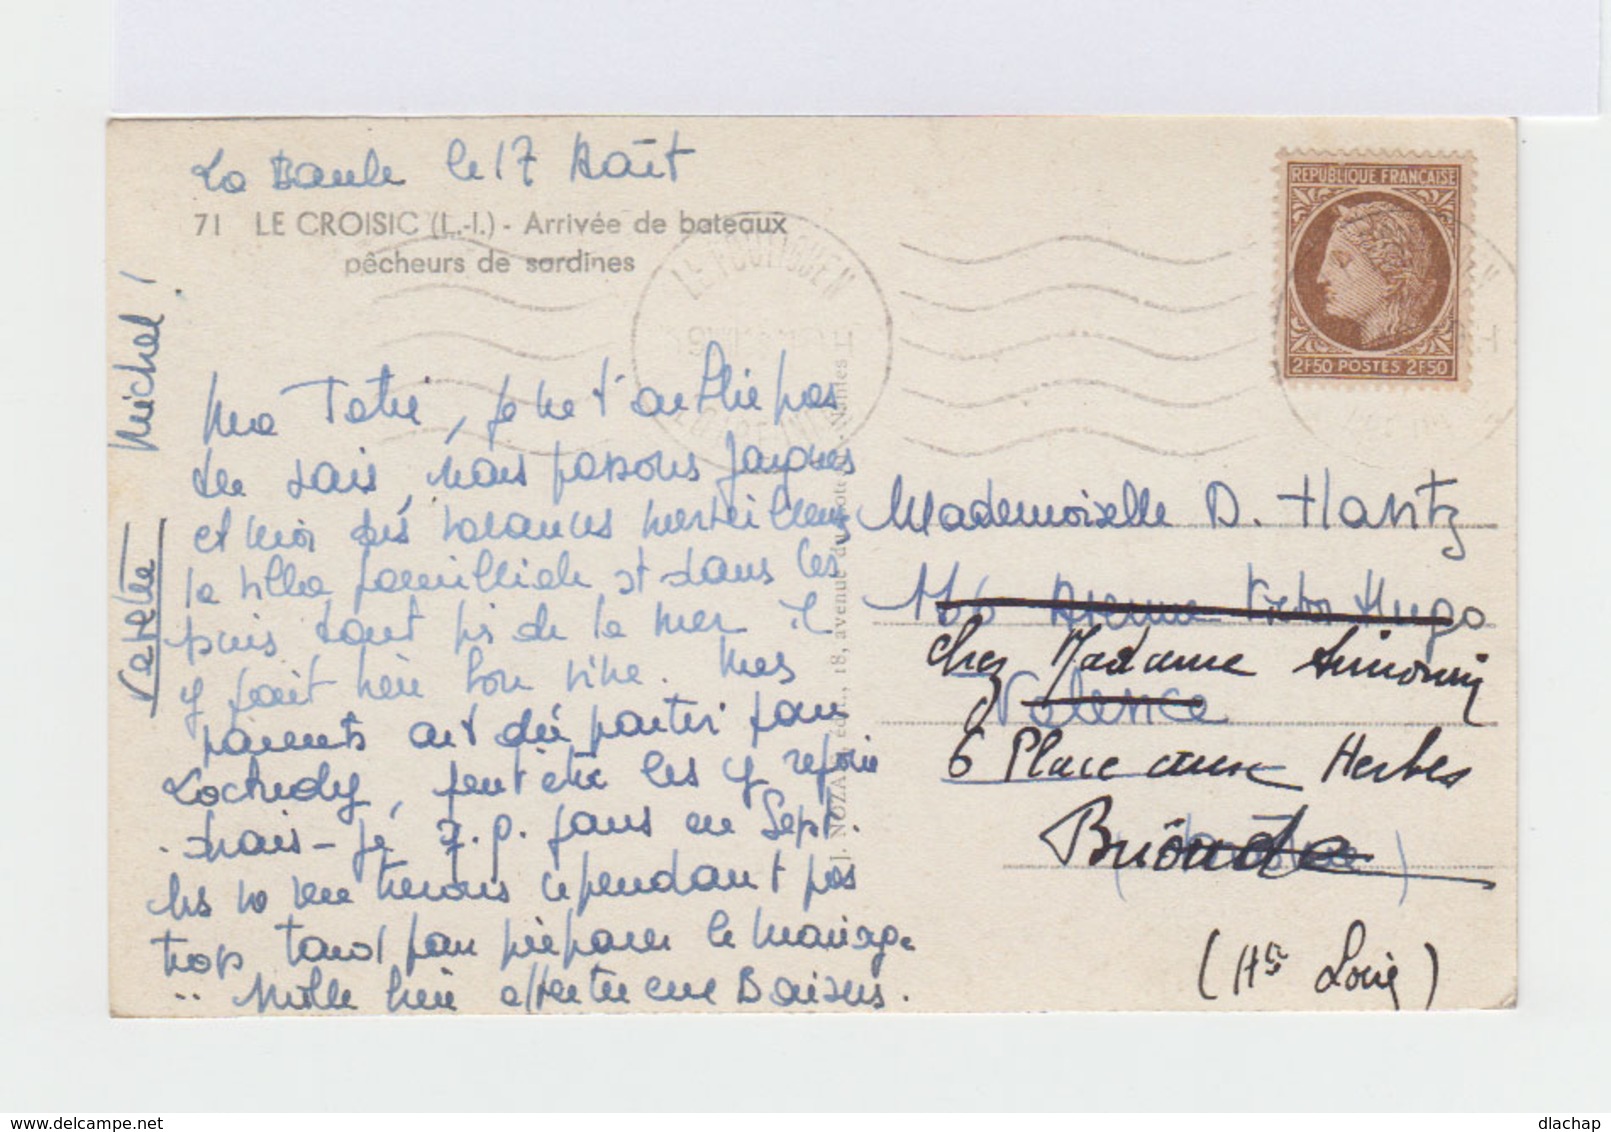 La Baule le 17 Août
71 LE CROISIC (L.-I.) - Arrivée de bateaux
pêcheurs de sardines
LE POULIGUEN
REPUBLIQUE FRANÇAISE
2F50 POSTES 2F50
Ma Tatie, je ne t'oublie pas
tu sais, nous passons Jacques
et moi des vacances merveilleuses
la villa familliale et dans les
puis tout près de la mer il
y fait bien bon vivre. Mes
parents ont dû partir pour
Loctudy, peut être les y rejoin
drais-je q.q. jours en Sept.
trop tard pour préparer le mariage
Mille bien affectueux Baisers.
Michel !
J. NOZAIS édit., 18, avenue du Nantes
Mademoiselle D. Hantz
166 Avenue Victor Hugo
Chez Madame Simonin
Valence
6 Place aux Herbes
Brioude
(Hte Loire)
dlachap